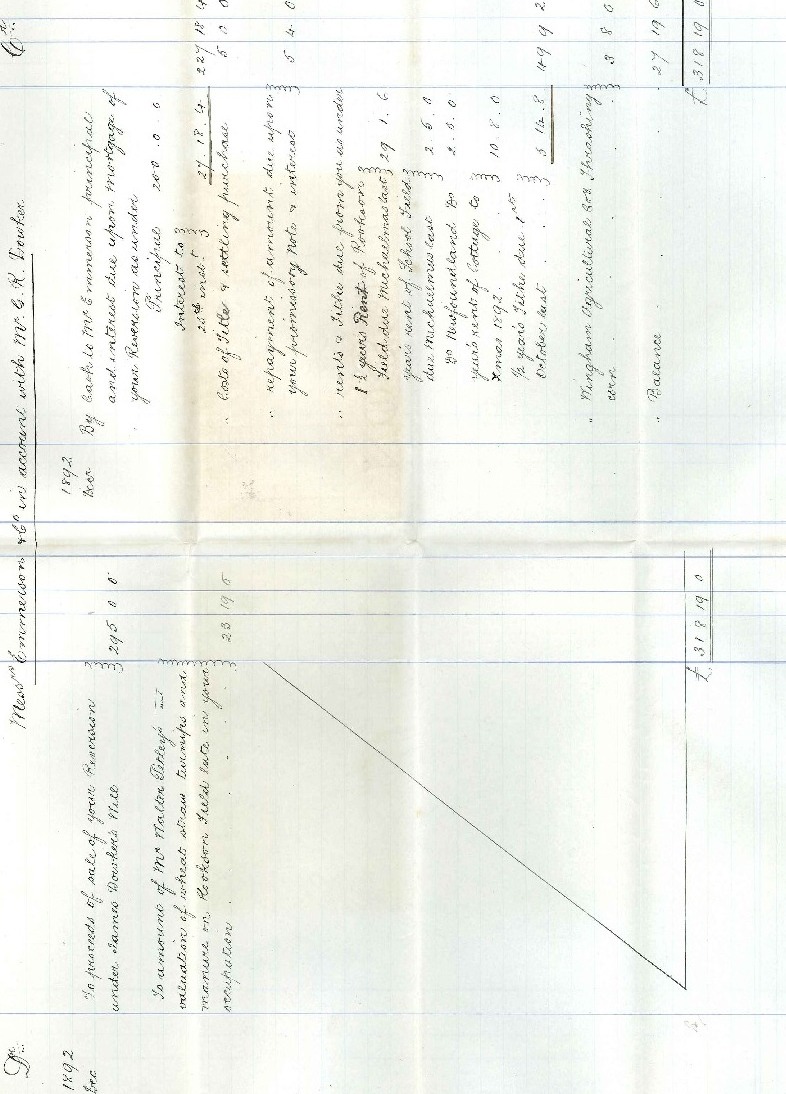 Dr.
Messrs Emmerson & Co in account with Mr. E. R. Dowker.
Cr.
1892
Dec
To proceeds of sale of your Reversion
under James Dowker's Will
295 0 0
To amount of Mr Walter Petley's
valuation of wheat straw turnips and
manure on Rookson Field late in your
occupation
23 19 0
£ 318 19 0
1892
Decr
By Cash to Mr Emmerson principal
and interest due upon mortgage of
your Reversion as under
Principal 200 . 0 . 0
Interest to
25th inst
27 . 18 . 4
227 18 4
" Costs of Title & settling purchase
5 0 0
" repayment of amount due upon
your promissory Note & interest
5 4 0
" rents & Tithe due from you as under
1½ years Rent of Rookson
Field due Michaelmas last
29 . 1 . 6
years rent of School Field
due Michaelmas last
2 . 5 . 0
Do Newfoundland Do
2 . 5 . 0
years rent of Cottage to
Xmas 1892
10 . 8 . 0
½ years Tithe due 1st
October last
5 . 12 . 8
49 9 2
" Wingham Agricultural Threshing
corn
3 8 0
" Balance
27 19 6
£ 318 19 0